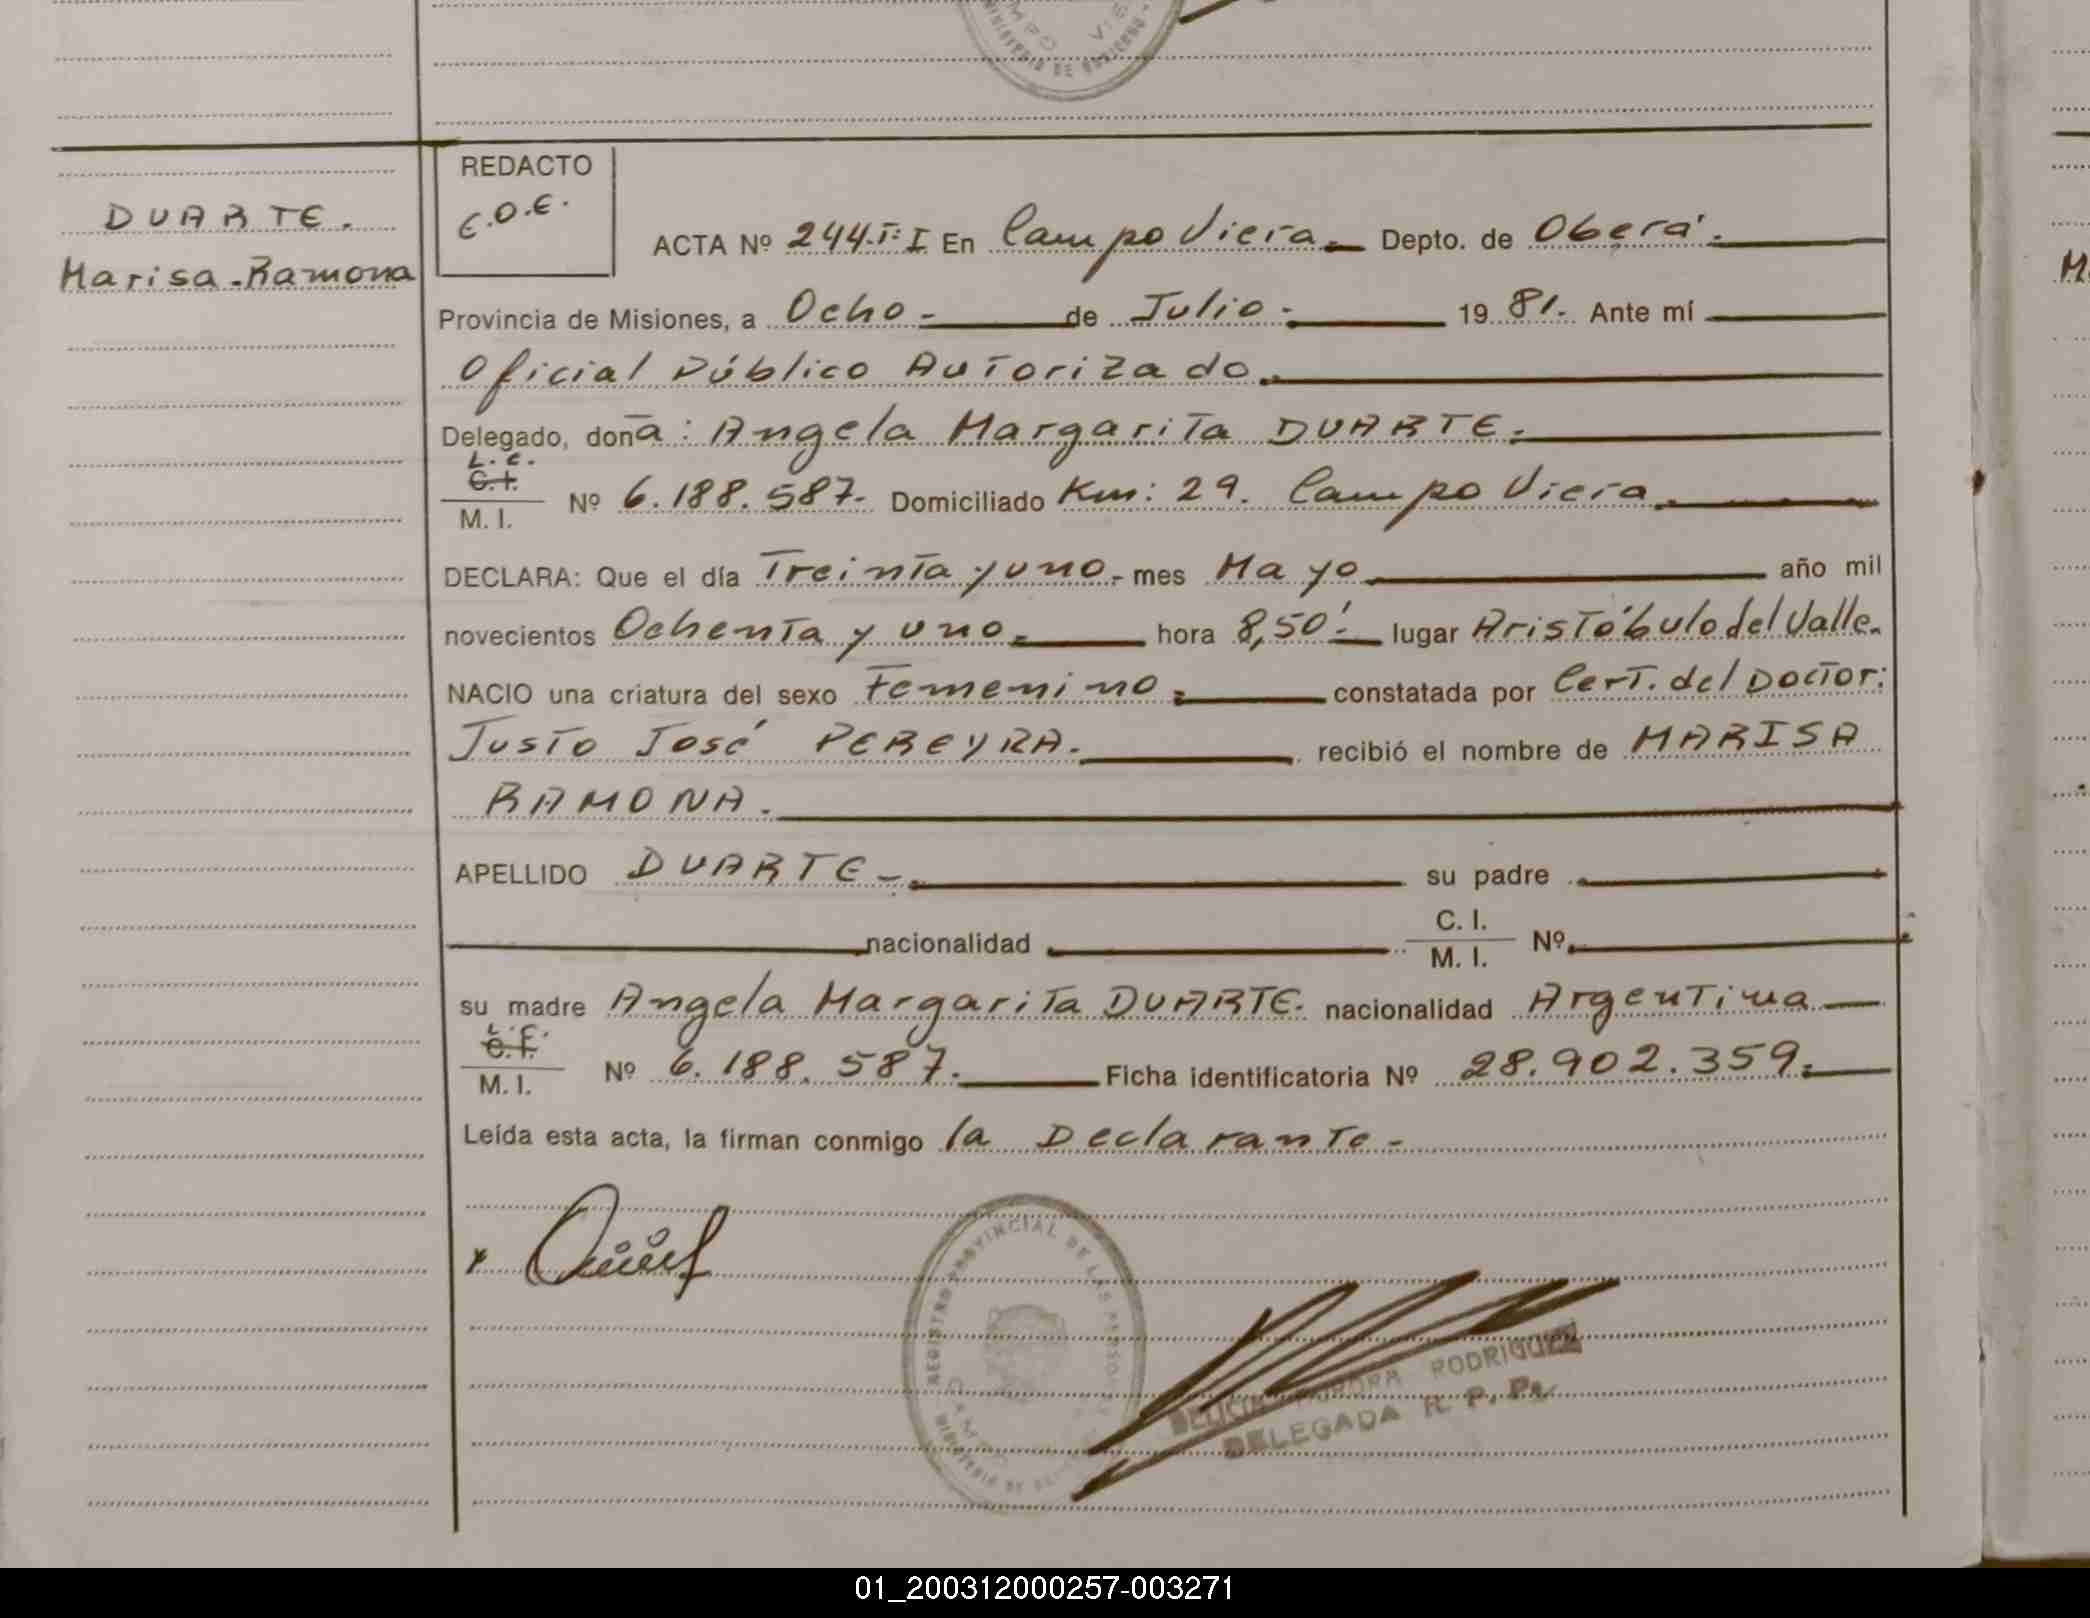 DUARTE.
Marisa Ramona
REDACTO
E.O.E.
ACTA Nº 244.T:I En Campo Viera. Depto. de Oberá.
Provincia de Misiones, a Ocho - de Julio - 19 81. Ante mí
Oficial Público Autorizado.
Delegado, doña: Angela Margarita DUARTE.
L.C.
C.I.
M. I. Nº 6.188.587. Domiciliado Km: 29. Campo Viera.
DECLARA: Que el día Treinta y uno.- mes Mayo año mil
novecientos Ochenta y uno. hora 8,50'. lugar Aristóbulo del Valle.
NACIO una criatura del sexo Femenino. constatada por Cert. del Doctor:
Justo José PEREYRA. recibió el nombre de MARISA
RAMONA.
APELLIDO DUARTE - su padre
nacionalidad C. I. M. I. Nº
su madre Angela Margarita DUARTE. nacionalidad Argentina
L.C.
C.I.
M. I. Nº 6.188.587. Ficha identificatoria Nº 28.902.359.
Leída esta acta, la firman conmigo la Declarante -
REGISTRO PROVINCIAL DE LAS PERSONAS
RODRIGUEZ
DELEGADA R. P. P.
01_200312000257-003271